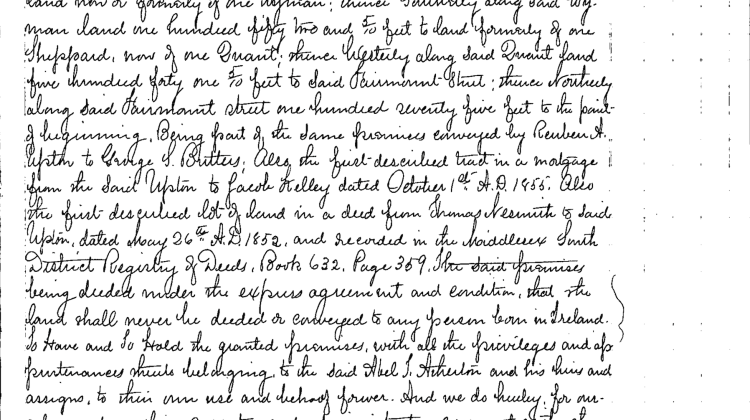 land now or formerly of one Wyman; thence Southerly along said Wy-
man land one hundred fifty two and 5/10 feet to land formerly of one
Sheppard, now of one Quant; thence Westerly along said Quant land
five hundred forty one 5/10 feet to said Fairmount Street; thence Northerly
along said Fairmount street one hundred seventy five feet to the point
of beginning. Being part of the same premises conveyed by Reuben A.
Upton to George S. Butters; Also, the first described tract in a mortgage
from the said Upton to Jacob Kelley dated October 1st A.D. 1855. Also
the first described lot of land in a deed from Thomas Nesmith to said
Upton, dated May 26th A.D. 1852, and recorded in the Middlesex South
District Registry of Deeds, Book 632, Page 359. The said premises
being deeded under the express agreement and condition, that the
land shall never be deeded or conveyed to any person born in Ireland.
To Have and To Hold the granted premises, with all the privileges and ap
purtenances thereto belonging, to the said Abel T. Atherton and his heirs and
assigns, to their own use and behoof forever. And we do hereby, for our-